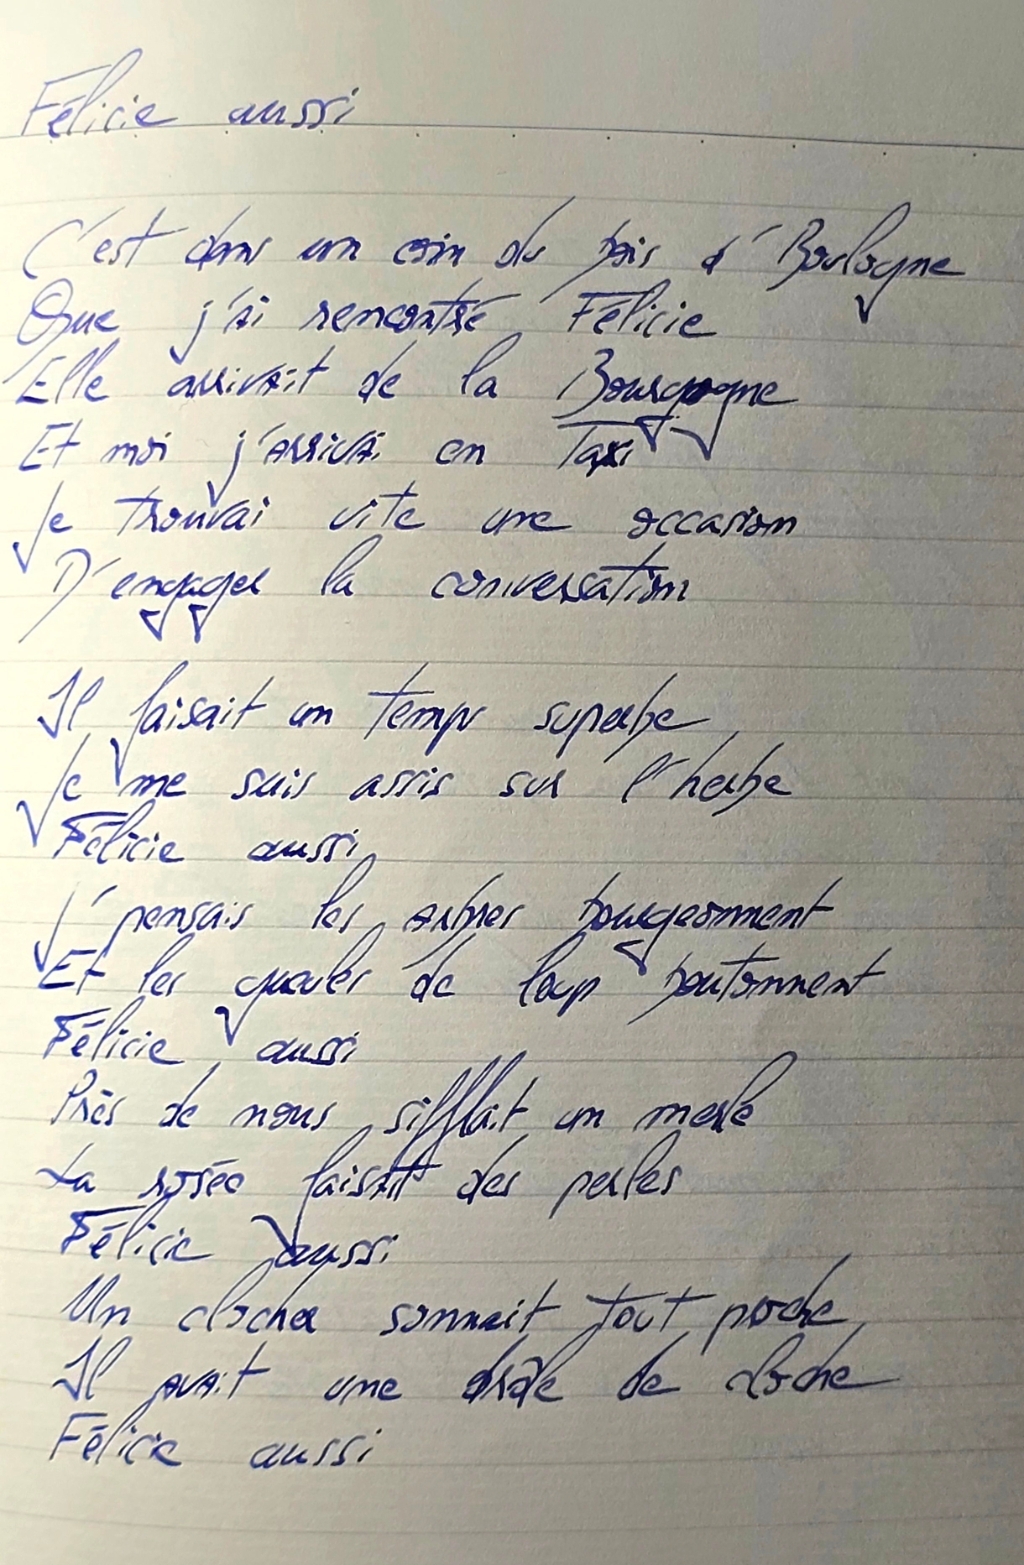 Félicie aussi
C'est dans un coin du bois d'Boulogne
Que j'ai rencontré Félicie
Elle arrivait de la Bourgogne
Et moi j'arrivai en Taxi
Je trouvai vite une occasion
D'engager la conversation
Il faisait un temps superbe
Je me suis assis sur l'herbe
Félicie aussi
J'pensais les arbres bourgeonnent
Et les gueules de loup boutonnent
Félicie aussi
Près de nous sifflait un merle
La rosée faisait des perles
Félicie aussi
Un clocher sonnait tout proche
Il avait une drôle de cloche
Félicie aussi